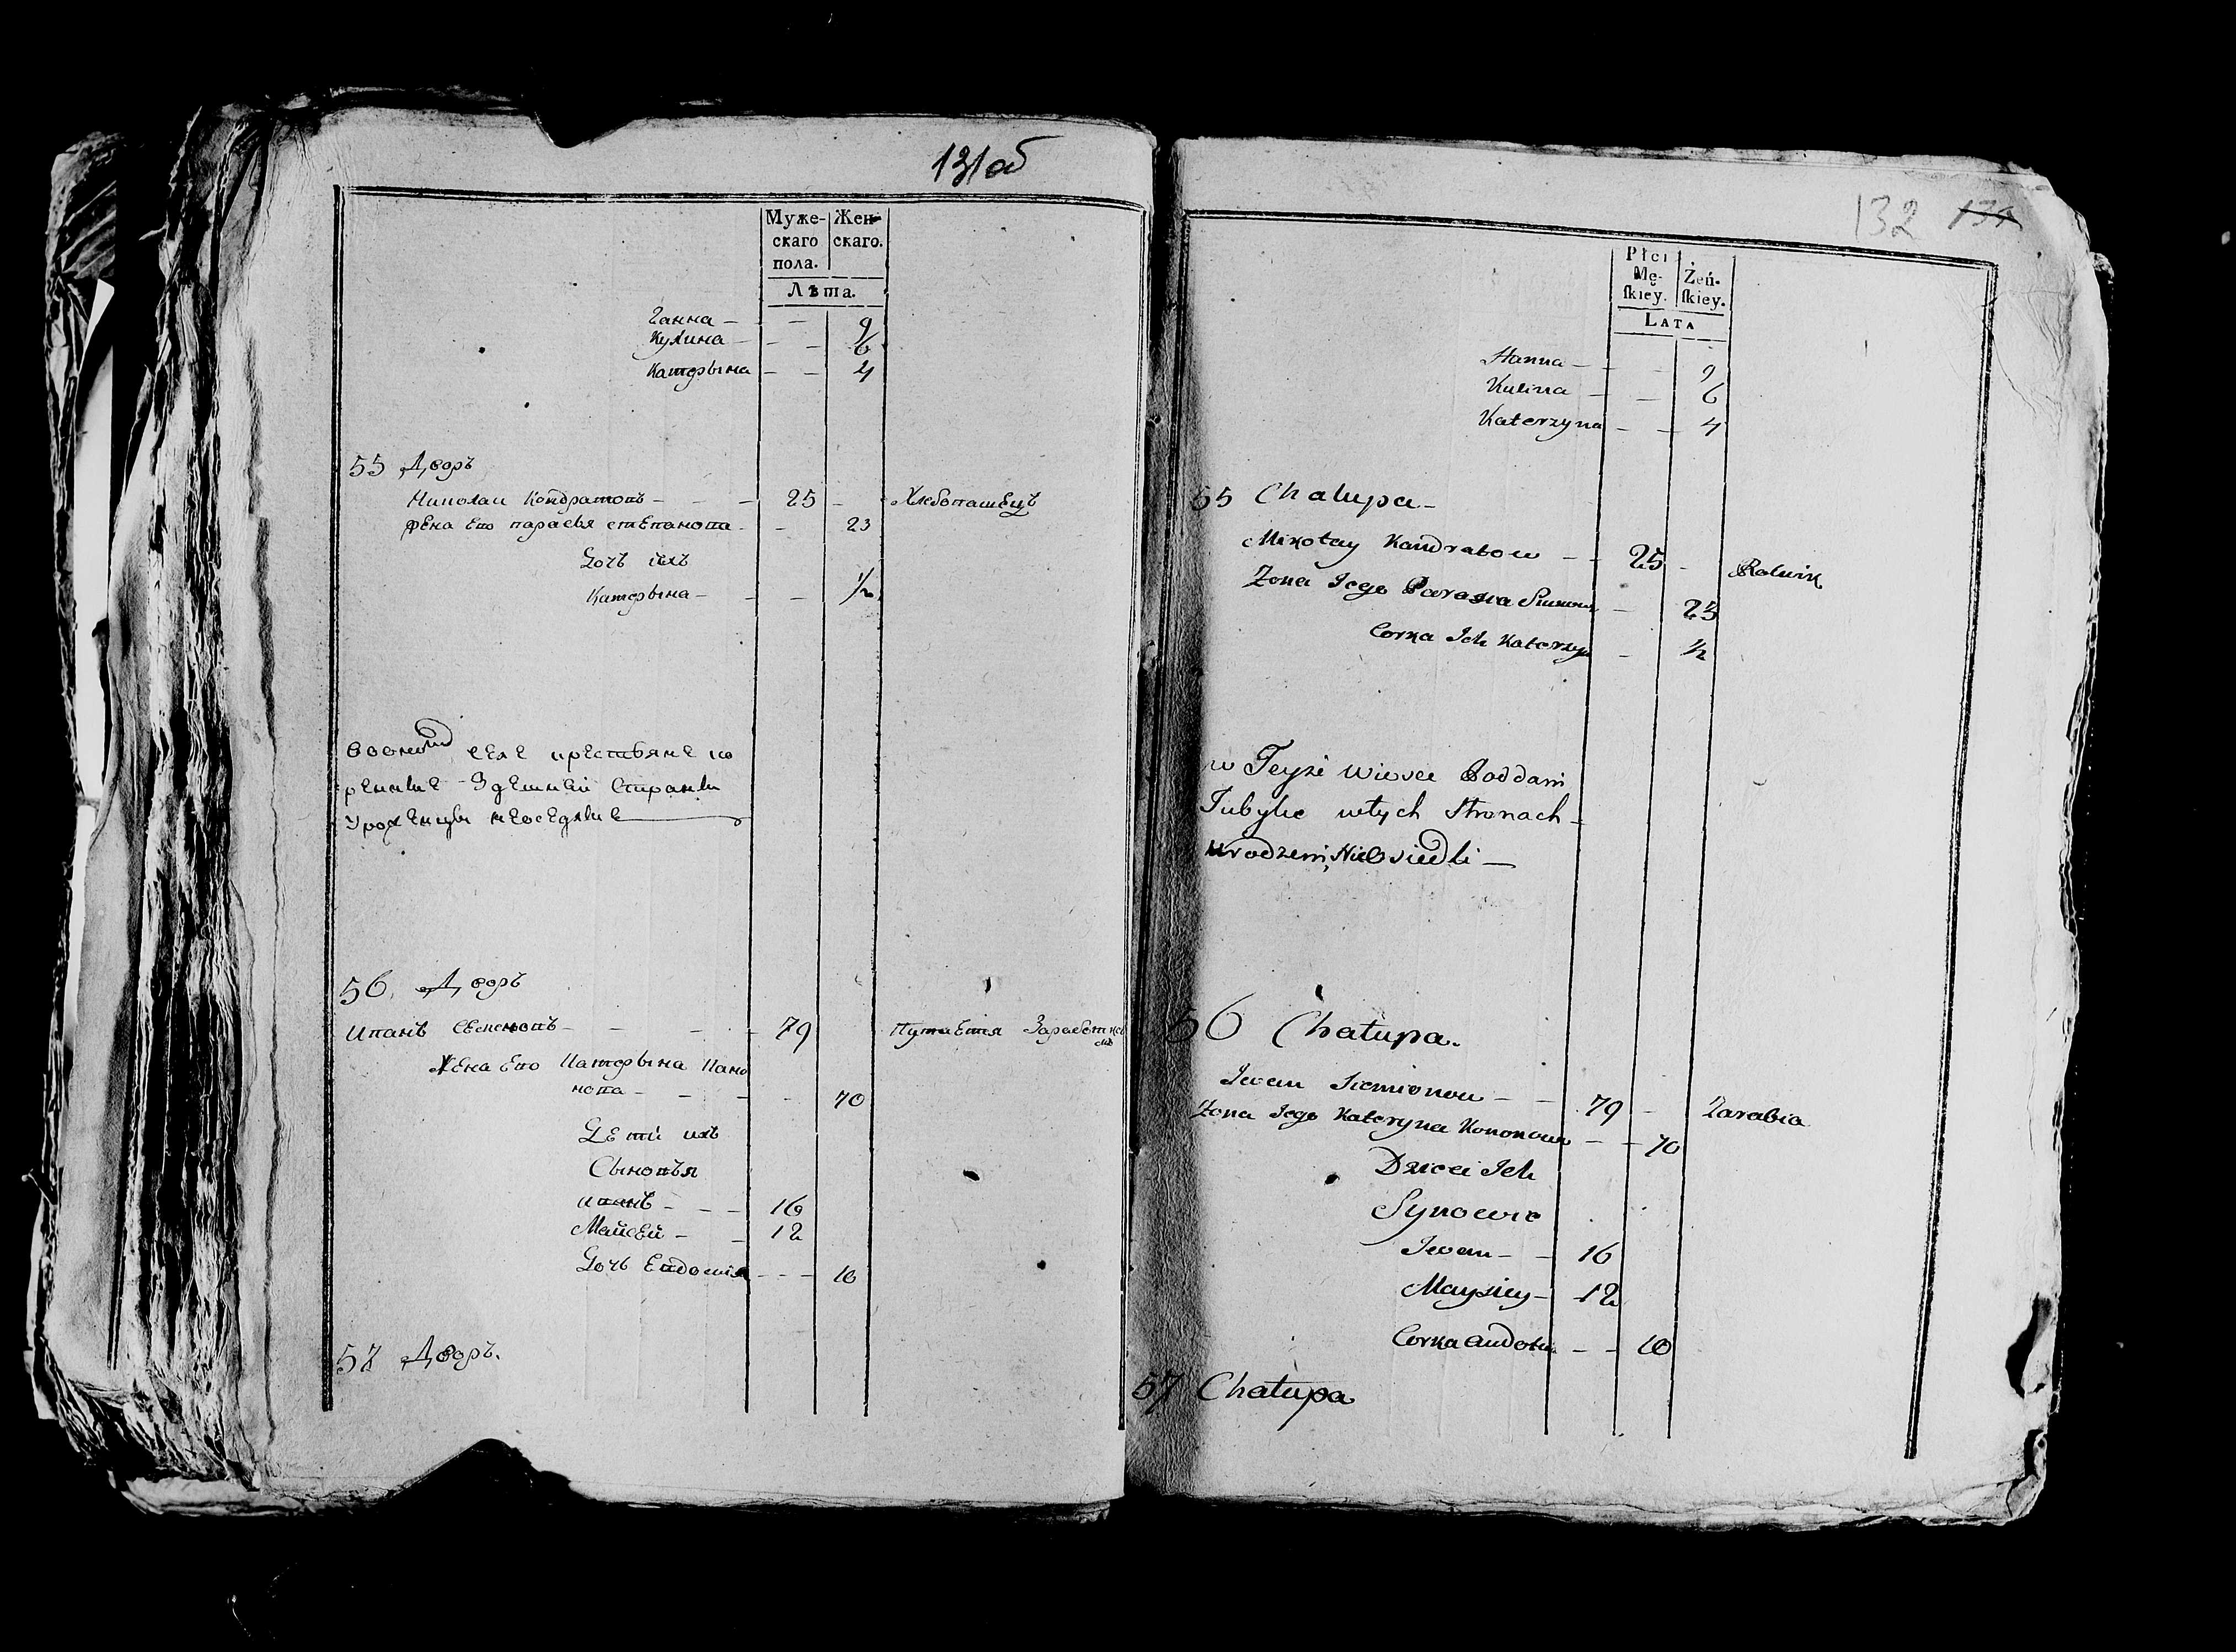 131об
Муже- Жен-
скаго скаго.
пола.
Лѣта.
Ганна — — 9
Кулина — — 6
Катерына — — 4
55 Дворъ
Николаи Кондратовъ — — — 25 — Хлебопашецъ
жена Его парасья степанова — — 23
Дочь ихъ
Катерына — — — 1/2
селе крестьяне
Здешней Стораны
Уроженцы неоседлые
56. Дворъ
Иванъ Семеновъ — — — 79 Питается Заработка
мъ
Жена Его Катерына Коно
нова — — — — 70
Дети ихъ
Сыновья
Иванъ — — — 16
Майсей — — 12
Дочь Евдокия — — — 10
57 Дворъ.
132 131
Płci
Mę- Żeń-
skiey. skiey.
LATA
Hanna — — — 9
Kulina — — 6
Katerzyna — — 4
55 Chalupa —
Mikołay Kandratow — — 25 — Rolnik
Zona Jego Parasia — 23
Corka Ich Katerzyn — 1/2
w Teyze wiosce Poddani
Tubylce wtych Stronach —
urodzeni, Nieosiedli —
56 Chatupa.
Iwan Siemionow — — 79 — Zarabia
Zona Jego Kateryna Kononowa — — 70
Dzieci Ich
Synowie
Iwan — — 16
Maysiey — 12
Corka Audotia — — 10
57 Chatupa